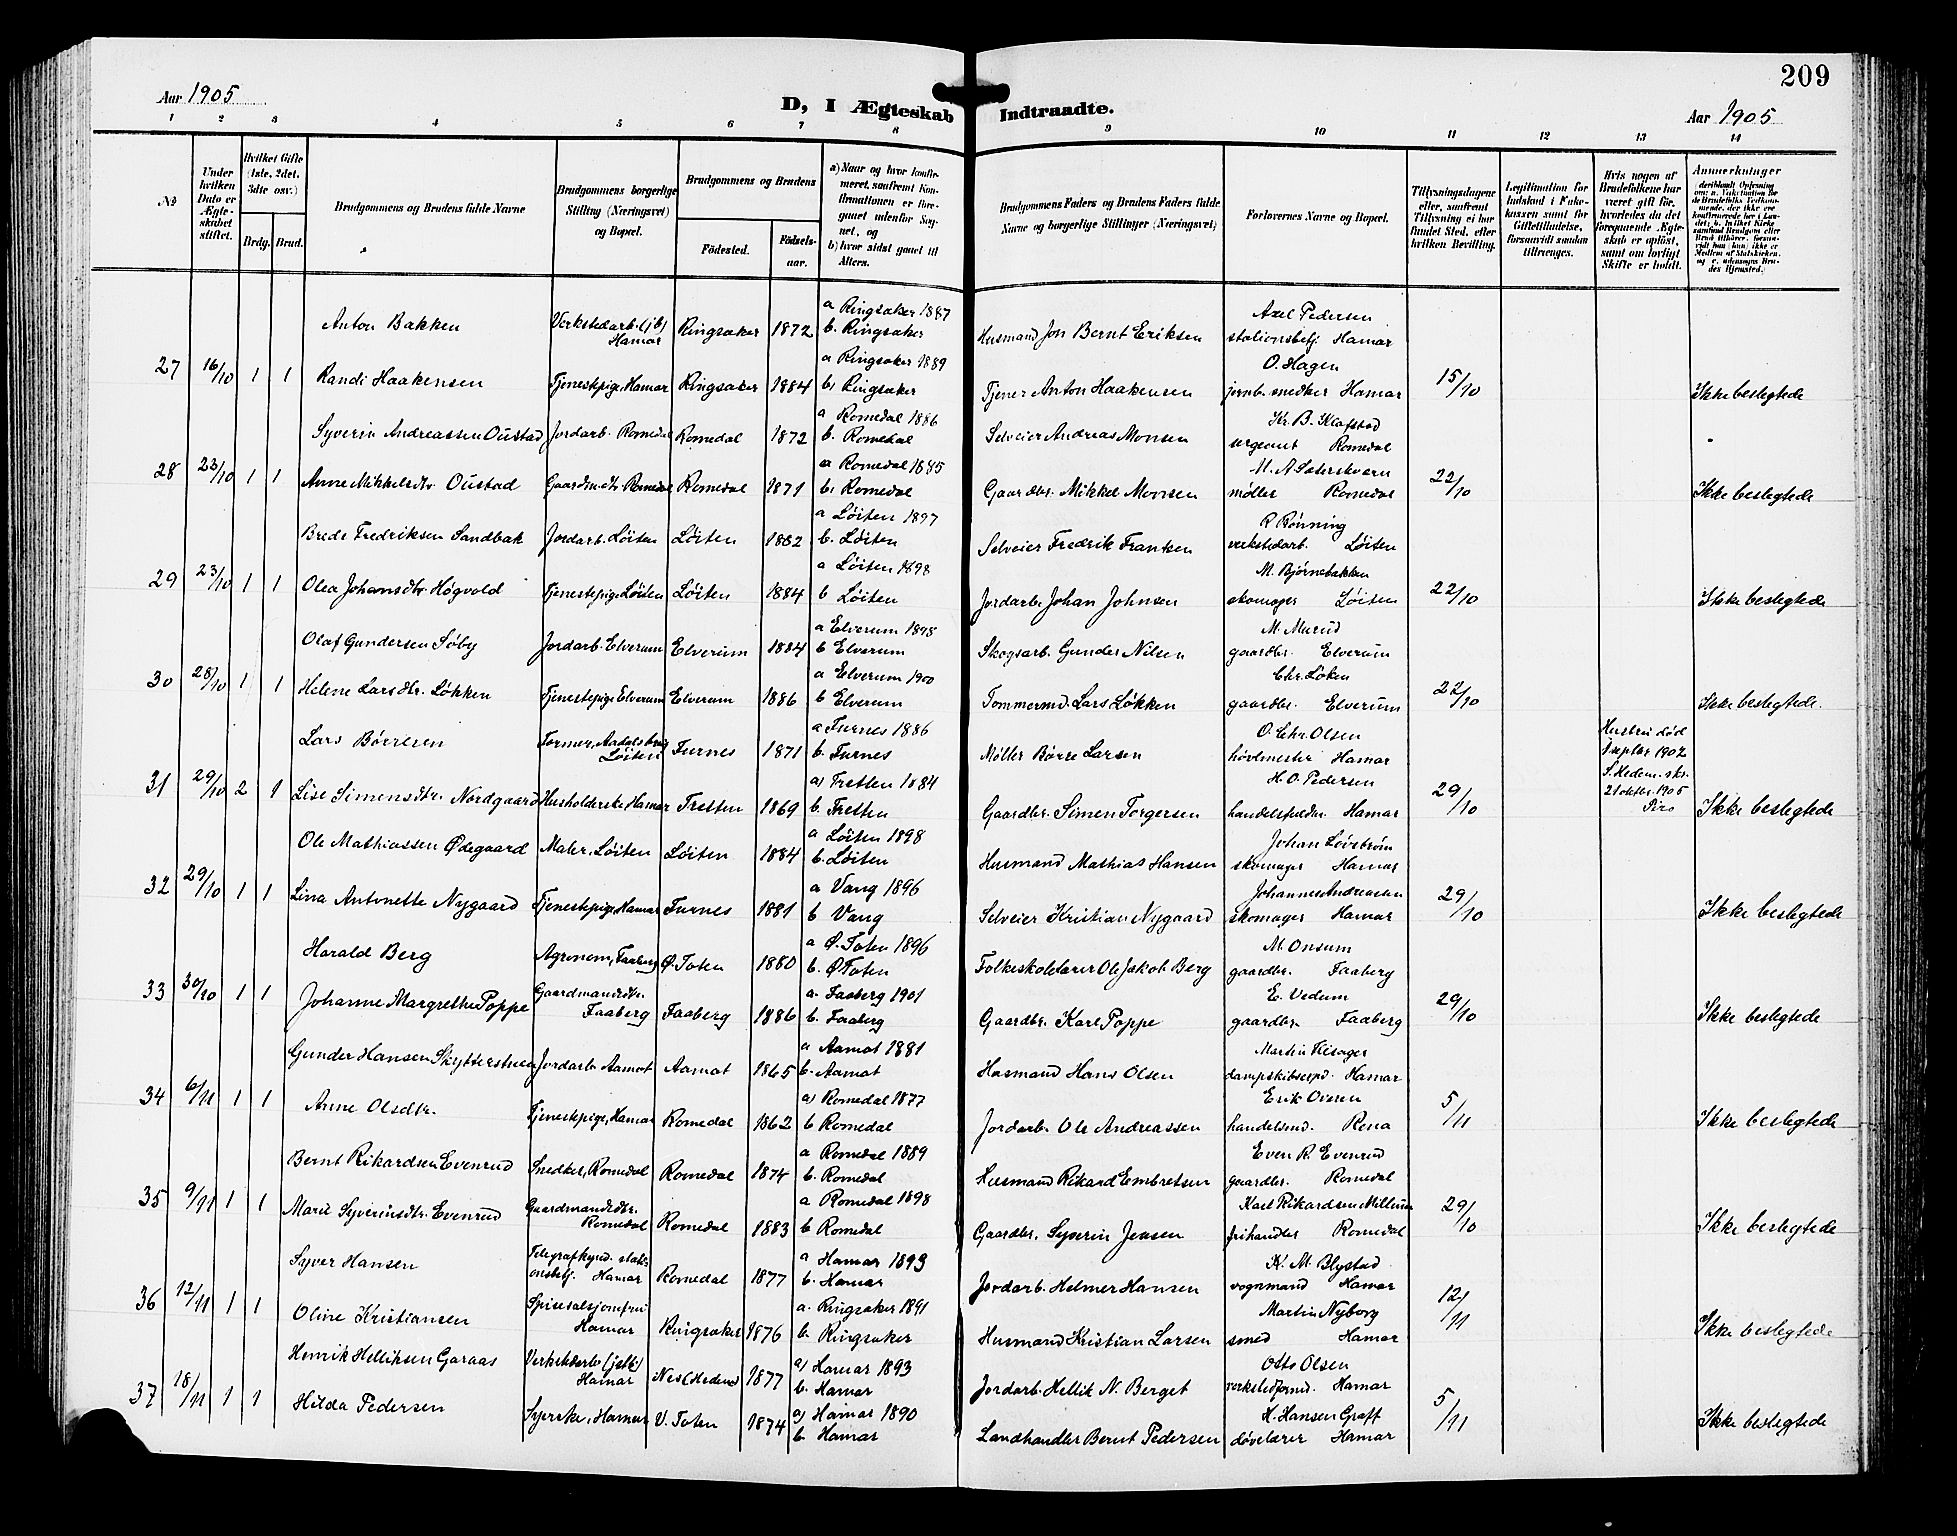 209
Aar 1905
D, I Ægteskab Indtraadte.
Aar 1905
1 2 3 4 5 6 7 8 9 10 11 12 13 14
№
Under hvilken Dato er Ægteskabet stiftet.
Hvilket Gifte (1ste, 2det, 3die osv.)
Brdg. Brud.
Brudgommens og Brudens fulde Navne
Brudgommens borgerlige Stilling (Næringsvei) og Bopæl.
Brudgommens og Brudens
Fødested.
Fødselsaar.
a) Naar og hvor konfirmeret, samt
b) hvor sidst gaaet til Alters.
Brudgommens Faders og Brudens Faders fulde Navne og borgerlige Stillinger (Næringsvei)
Forlovernes Navne og Bopæl.
Tillysningsdagene eller, saafremt Tillysning ei har fundet Sted, efter hvilken Bevilling.
Legitimation for Indskud i Enkekassen samt for Giftetilladelse, forsaavidt saadan tiltrænges.
Hvis nogen af Brudefolkene har været gift før, hvorledes da det foregaaende Ægteskab er opløst, samt om lovligt Skifte er holdt.
Anmærkninger
Anton Bakken Verkstedarb. (jb) Hamar Ringsaker 1872 a Ringsaker 1887 b. Ringsaker Husmand Jon Bernt Eriksen Axel Pedersen stationsbetj. Hamar
27 16/10 1 1 Randi Haakensen Tjenestepige, Hamar Ringsaker 1884 a Ringsaker 1889 b. Ringsaker Tjener Anton Haakensen O. Hagen jernb. snedker Hamar 15/10 Ikke beslegtede
Syverin Andreassen Oustad Jordarb. Romedal Romedal 1872 a Romedal 1886 b. Romedal Selveier Andreas Monsen Kr. B. Klafstad sergeant Romedal
28 23/10 1 1 Anne Mikkelsdtr. Oustad Gaardm.dtr. Romedal Romedal 1871 a Romedal 1885 b. Romedal Gaardbr. Mikkel Monsen M. A Sæterskvern møller Romedal 22/10 Ikke beslegtede
Brede Fredriksen Sandbak Jordarb. Løiten Løiten 1882 a Løiten 1897 b. Løiten Selveier Fredrik Fransen R Rønning verkstedarb. Løiten
29 23/10 1 1 Olea Johansdtr Høgvold Tjenestepige Løiten Løiten 1884 a Løiten 1898 b Løiten Jordarb. Johan Johnsen M. Bjørnebakken skomager Løiten 22/10 Ikke beslegtede
Olaf Gundersen Søby Jordarb. Elverum Elverum 1884 a Elverum 1898 b Elverum Skogsarb. Gunder Nilsen M. Murud gaardbr. Elverum
30 28/10 1 1 Helene Larsdtr. Løkken Tjenestepige Elverum Elverum 1886 a Elverum 1900 b Elverum Tømmermd. Lars Løkken Chr. Løken gaardbr. Elverum 22/10 Ikke beslegtede.
Lars Børresen Former, Aadalsbrug Løiten Furnes 1871 a Furnes 1886 b. Furnes Møller Børre Larsen O. Chr. Olsen høvlmester Hamar Hustru død septbr 1902
31 29/10 2 1 Lise Simensdtr. Nordgaard Husholderske Hamar Tretten 1869 a) Tretten 1884 b. Tretten Gaardbr. Simen Torgersen H. O. Pedersen handelsfuldm. Hamar 29/10 S. Hedem. skr. 21 oktbr. 1905 Piro Ikke beslegtede
Ole Mathiassen Ødegaard Maler, Løiten Løiten 1884 a Løiten 1898 b. Løiten Husmand Mathias Hansen Johan Løvstrøm skomager Hamar
32 29/10 1 1 Lina Antonette Nygaard Tjenestepige, Hamar Furnes 1881 a Vang 1896 b Vang Selveier Kristian Nygaard Johannes Andreasen skomager Hamar 29/10 Ikke beslegtede
Harald Berg Agronom, Faaberg Ø. Toten 1880 a Ø. Toten 1896 b. Ø Toten Folkeskolelærer Ole Jakob Berg M. Onsum gaardbr. Faaberg
33 30/10 1 1 Johanne Margrethe Poppe Gaardmandsdtr. Faaberg Faaberg 1886 a. Faaberg 1901 b. Faaberg Gaardbr. Karl Poppe E. Vedum gaardbr. Faaberg 29/10 Ikke beslegtede
Gunder Hansen Skytterstuen Jordarb Aamot Aamot 1865 a Aamot 1881 b. Aamot Husmand Hans Olsen Martin Kisager dampskibsexpd. Hamar
34 6/11 1 1 Anne Olsdtr. Tjenestepige, Hamar Romedal 1862 a) Romedal 1877 b Romedal Jordarb. Ole Andreassen Erik handelsmd. Rena 5/11 Ikke beslegtede
Bernt Rikardsen Evenrud Snedker, Romedal Romedal 1874 a Romedal 1889 b. Romedal Husmand Rikard Embretsen Even R. Evenrud gaardbr. Romedal
35 9/11 1 1 Marie Syverinsdtr. Evenrud Gaardmandsdtr. Romedal Romedal 1883 a Romedal 1898 b Romedal Gaardbr. Syverin Jensen Karl Rikardsen Millum frihandler Romedal 29/10 Ikke beslegtede
Syver Hansen Telegrafkynd. stationsbetj. Hamar Romedal 1877 a Hamar 1893 b. Hamar Jordarb. Helmer Hansen K. M. Blystad vognmand Hamar
36 12/11 1 1 Oline Kristiansen Spisesalsjomfru Hamar Ringsaker 1876 a. Ringsaker 1891 b. Ringsaker Husmand Kristian Larsen Martin Nyborg smed Hamar 12/11 Ikke beslegtede
Henrik Helliksen Garaas Verkstedarb (jstb) Hamar Nes (Hedem) 1877 a) Hamar 1893 b. Hamar Jordarb. Hellik N. Berget Otto Olsen verkstedformd. Hamar
37 18/11 1 1 Hilda Pedersen Syerske, Hamar V. Toten 1874 a) Hamar 1890 b. Hamar Landhandler Bernt Pedersen H. Hansen Graff døvelærer Hamar 5/11 Ikke beslegtede